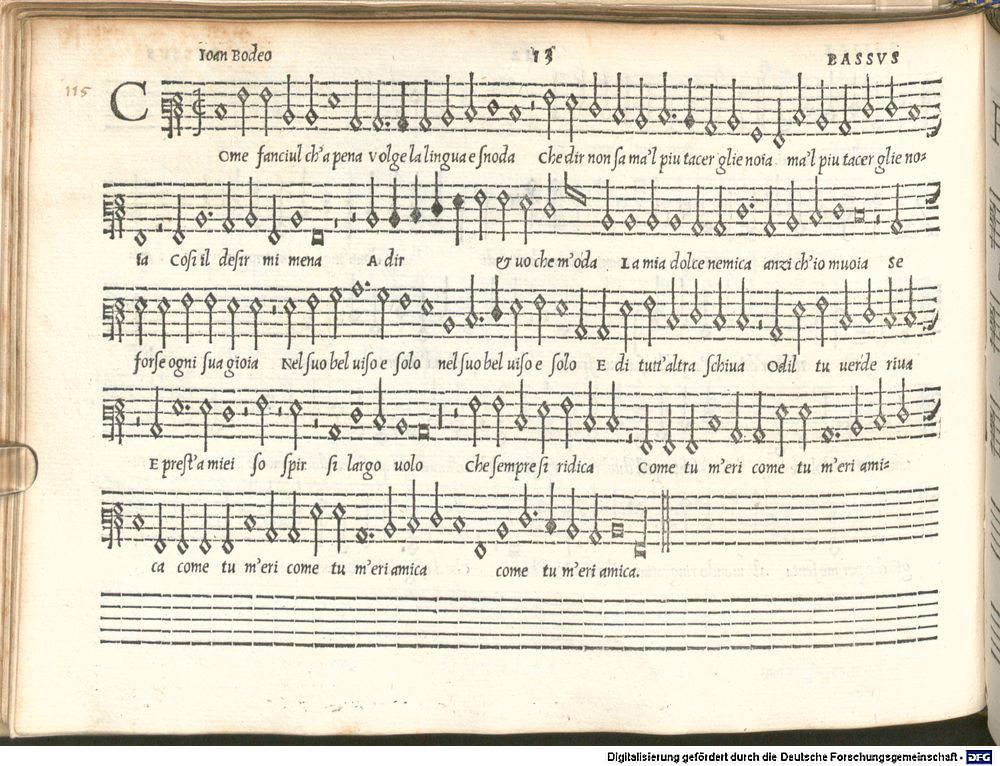 Ioan Bodeo 13 BASSVS
115
C
Ome fanciul ch'a pena volge la lingua e snoda Che dir non sa ma'l piu tacer gli e noia ma'l piu tacer gli e no=
ia Cosi il desir mi mena A dir et uo che m'oda La mia dolce nemica anzi ch'io muoia Se
forse ogni sua gioia Nel suo bel uiso e solo nel suo bel uiso e solo E di tutt'altra schiua Odil tu uerde riua
E prest'a miei so spir si largo uolo Che sempre si ridica Come tu m'eri come tu m'eri ami=
ca come tu m'eri come tu m'eri amica come tu m'eri amica.
Digitalisierung gefördert durch die Deutsche Forschungsgemeinschaft - DFG